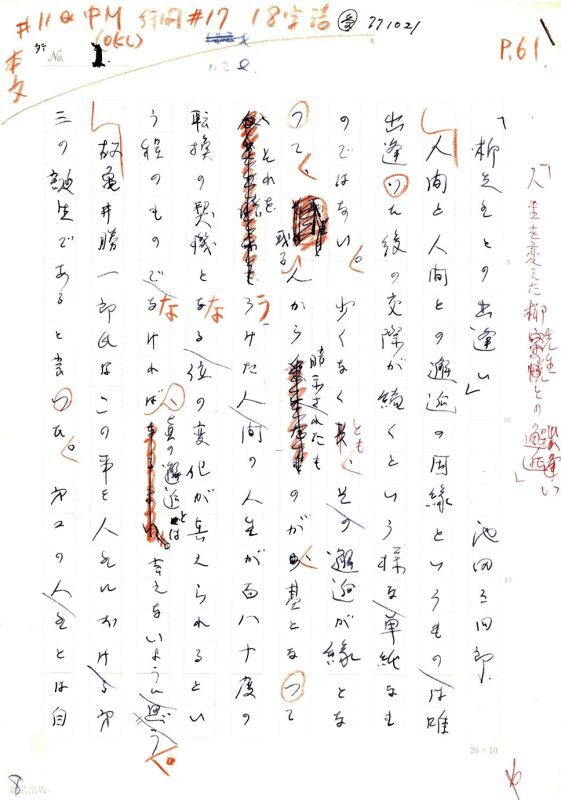 #11Q PM 行間 #17 18字詰 771021
(OKL)
本文
No. 1
P.61
「人生を変えた柳宗悦先生との出逢い」
「柳先生との出逢い」 池田三四郎
人間と人間との邂逅の因縁というものは唯
出逢った後の交際が続くという様な単純なも
のではない。少くなくとも、その邂逅が縁とな
って、それを
或る人から啓示されたものが基となって
うけた人間の人生が百八十度の
転換の契機となる位の変化が与えられるとい
う程のものでなければ、真の邂逅とは言えないように思う。
故亀井勝一郎氏はこの事を人生に於ける第
三の誕生であると言った。第二の人生とは自
20×10